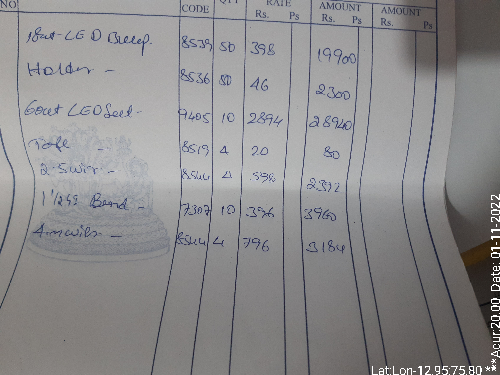 NO CODE QTY RATE AMOUNT AMOUNT
Rs. Ps Rs. Ps Rs. Ps
LED 8539 50 398 19900
Holder - 8536 50 46 2300
LED 9405 10 2894 28940
8519 4 20 80
8544 4 598 2392
1 1/2 Bend - 7307 10 396 3960
8544 4 796 3184
Lat:Lon-12.9575,80 ***Acur:20.00 Date: 01-11-2022